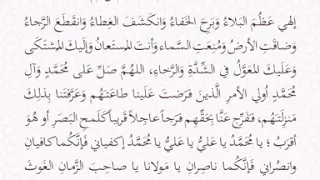 إلهي عَظُمَ البَلاءُ وَبَرِحَ الخَفاءُ وَانكَشَفَ الغِطاءُ وَانقَطَعَ الرَّجاءُ
وَضاقَتِ الأرضُ وَمُنِعَتِ السَّماءُ وَأنتَ المُستَعانُ وَإلَيكَ المُشتَكى
وَعَلَيكَ المُعَوَّلُ في الشِّدَّةِ وَالرَّخاءِ، اللهُمَّ صَلِّ عَلى مُحَمَّدٍ وَآلِ
مُحَمَّدٍ أولي الأمرِ الَّذينَ فَرَضتَ عَلَينا طاعَتَهُم وَعَرَّفتَنا بِذلِكَ
مَنزِلَتَهُم، فَفَرِّج عَنَّا بِحَقِّهِم فَرَجاً عاجِلاً قَريباً كَلَمحِ البَصَرِ أو هُوَ
أقرَبُ؛ يا مُحَمَّدُ يا عَليُّ يا عَليُّ يا مُحَمَّدُ إكفياني فَإنَّكُما كافيانِ
وَانصُراني فَإنَّكُما ناصِرانِ يا مَولانا يا صاحِبَ الزَّمانِ الغَوثَ